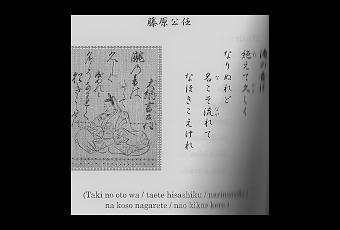 藤原公任
滝の音は
絶えて久しく
なりぬれど
名こそ流れて
なほきこえけれ
大納言公任
(Taki no oto wa / taete hisashiku / narinuredo /
na koso nagarete / nao kikoe kere )